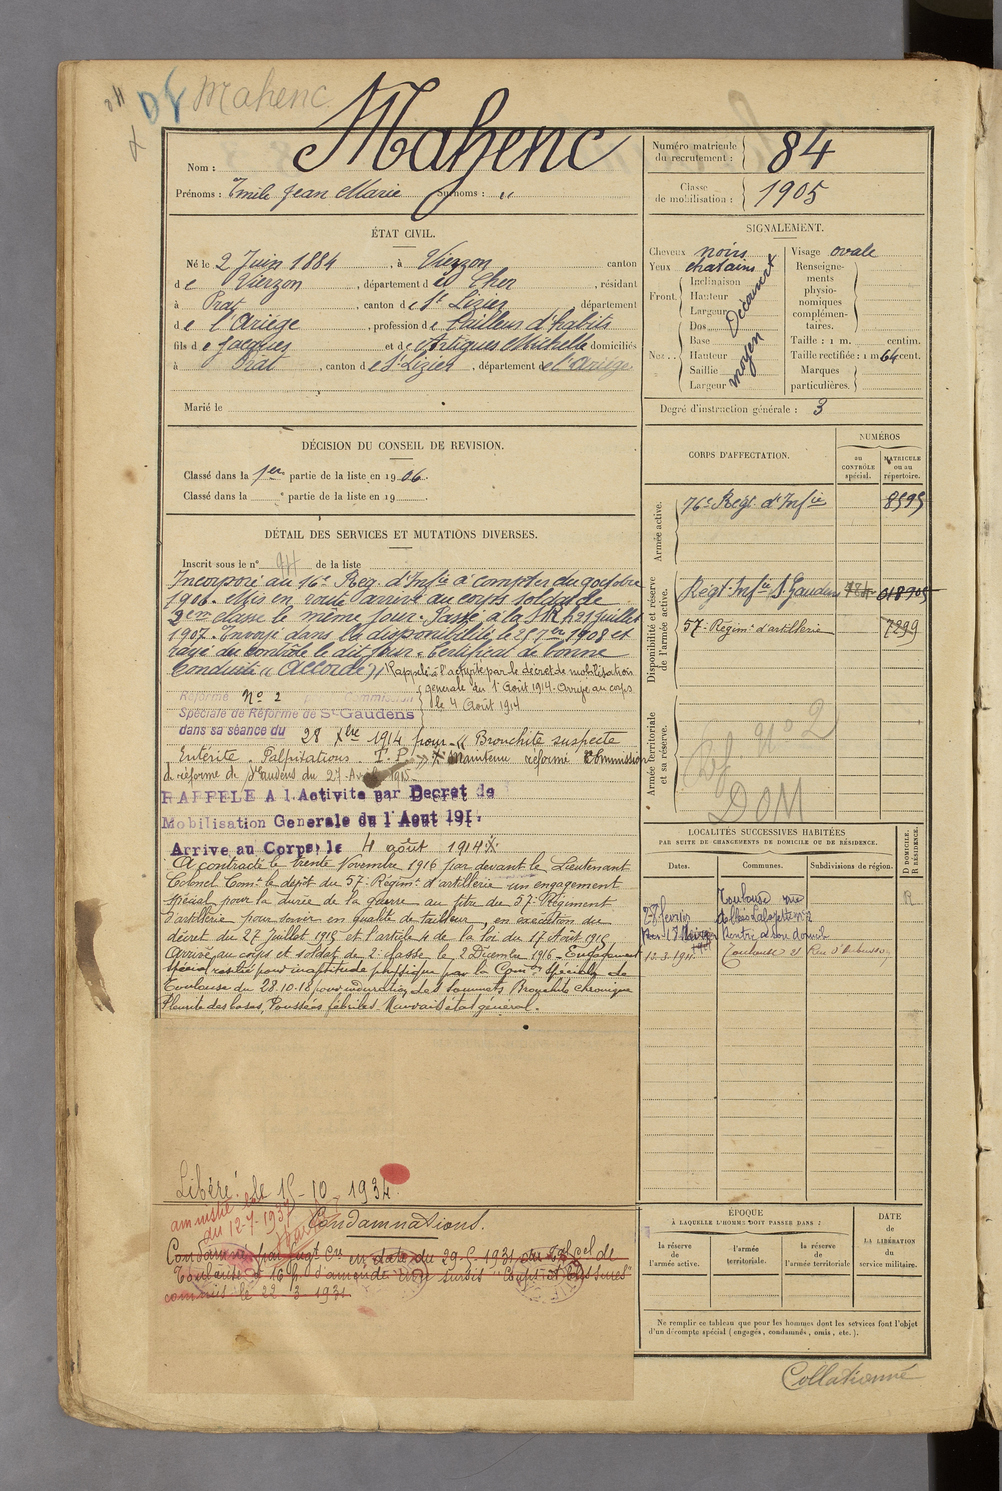 Mahenc
Nom : Mahenc
Prénoms : Emile Jean Marie Surnoms : "
Numéro matricule du recrutement : 84
Classe de mobilisation : 1905
ÉTAT CIVIL.
Né le 2 Juin 1884, à Vierzon canton
de Vierzon, département du Cher, résidant
à Prat, canton de St Lizier, département
de l'Ariège, profession de tailleur d'habits
fils de Jacques et de Artigues Michelle domiciliés
à Prat, canton de St Lizier, département de l'Ariège
Marié le
SIGNALEMENT.
Cheveux noirs
Yeux chatains
Front. Inclinaison
Hauteur
Largeur
Découvert
Nez. Dos
Base
Hauteur
Saillie
Largeur
moyen
Visage ovale
Renseignements physionomiques complémentaires.
Taille : 1 m. centim.
Taille rectifiée : 1 m 64 cent.
Marques particulières.
Degré d'instruction générale : 3
DÉCISION DU CONSEIL DE REVISION.
Classé dans la 1ère partie de la liste en 1906.
Classé dans la e partie de la liste en 19
DÉTAIL DES SERVICES ET MUTATIONS DIVERSES.
Inscrit sous le n° de la liste
Incorporé au 76e Reg. d'Infie à compter du 9 octobre
1906. Mis en route arrivé au corps soldat de
2ème classe le même jour. Passé à la 21 juillet
1907. Envoyé dans la disponibilité le 1908 et
rayé du contrôle le dit jour. Certificat de bonne
conduite "Accordé" Rappelé à l'activité par le décret de mobilisation
générale du 1er Août 1914. Arrivé au corps
le 4 Août 1914
Réformé N° 2 Commission
Spéciale de Réforme de St Gaudens
dans sa séance du 28 Xbre 1914 pour "Bronchite suspecte
Entérite. Palpitations. T.P." Maintenu réformé Commission
de réforme de St Gaudens du 27 Avril 1915
RAPPELE A l'Activite par Decret de
Mobilisation Generale du 1 Aout 191
Arrive au Corps le 4 août 1914
A contracté le trente Novembre 1916 par devant le Lieutenant
Colonel Comt le dépôt du 57e Régimt d'artillerie un engagement
spécial pour la durée de la guerre au titre du 57e Régiment
d'artillerie pour servir en qualité de tailleur, en exécution du
décret du 27 Juillet 1915 et l'article 4 de la loi du 17 Août 1915
Arrivé au corps et soldat de 2e classe le 2 Décembre 1916 - Engagement
spécial résilié pour inaptitude physique par la Comon spéciale de
Toulouse du 28.10.18 pour induration des sommets Bronchite chronique
Pleurite des bases, Poussées fébriles Mauvais état général.
Libéré le 15-10-1934
amnistié
du 12-7-1937
Condamnations.
Condamné par jugt en date du 29.5.1931 du Tal cel de
Toulouse à 16 f d'amende avec sursis "Coups et blessures"
commis le 22.3.1931
CORPS D'AFFECTATION.
NUMÉROS
au CONTRÔLE spécial.
MATRICULE ou au répertoire.
Armée active.
76e Regt d'Infie 8595
Disponibilité et réserve de l'armée active.
Régt Infie St Gaudens 018905
57e Régimt d'artillerie 7299
Armée territoriale et sa réserve.
N° 2
DOM
LOCALITÉS SUCCESSIVES HABITÉES
PAR SUITE DE CHANGEMENTS DE DOMICILE OU DE RÉSIDENCE.
Dates. Communes. Subdivisions de région.
D DOMICILE.
R RÉSIDENCE.
Toulouse rue R
28 février
Rentré à son domicile
12.3.1911 Toulouse
ÉPOQUE
À LAQUELLE L'HOMME DOIT PASSER DANS :
la réserve de l'armée active.
l'armée territoriale.
la réserve de l'armée territoriale
DATE de LA LIBÉRATION du service militaire.
Ne remplir ce tableau que pour les hommes dont les services font l'objet
d'un décompte spécial (engagés, condamnés, omis, etc.).
Collationné